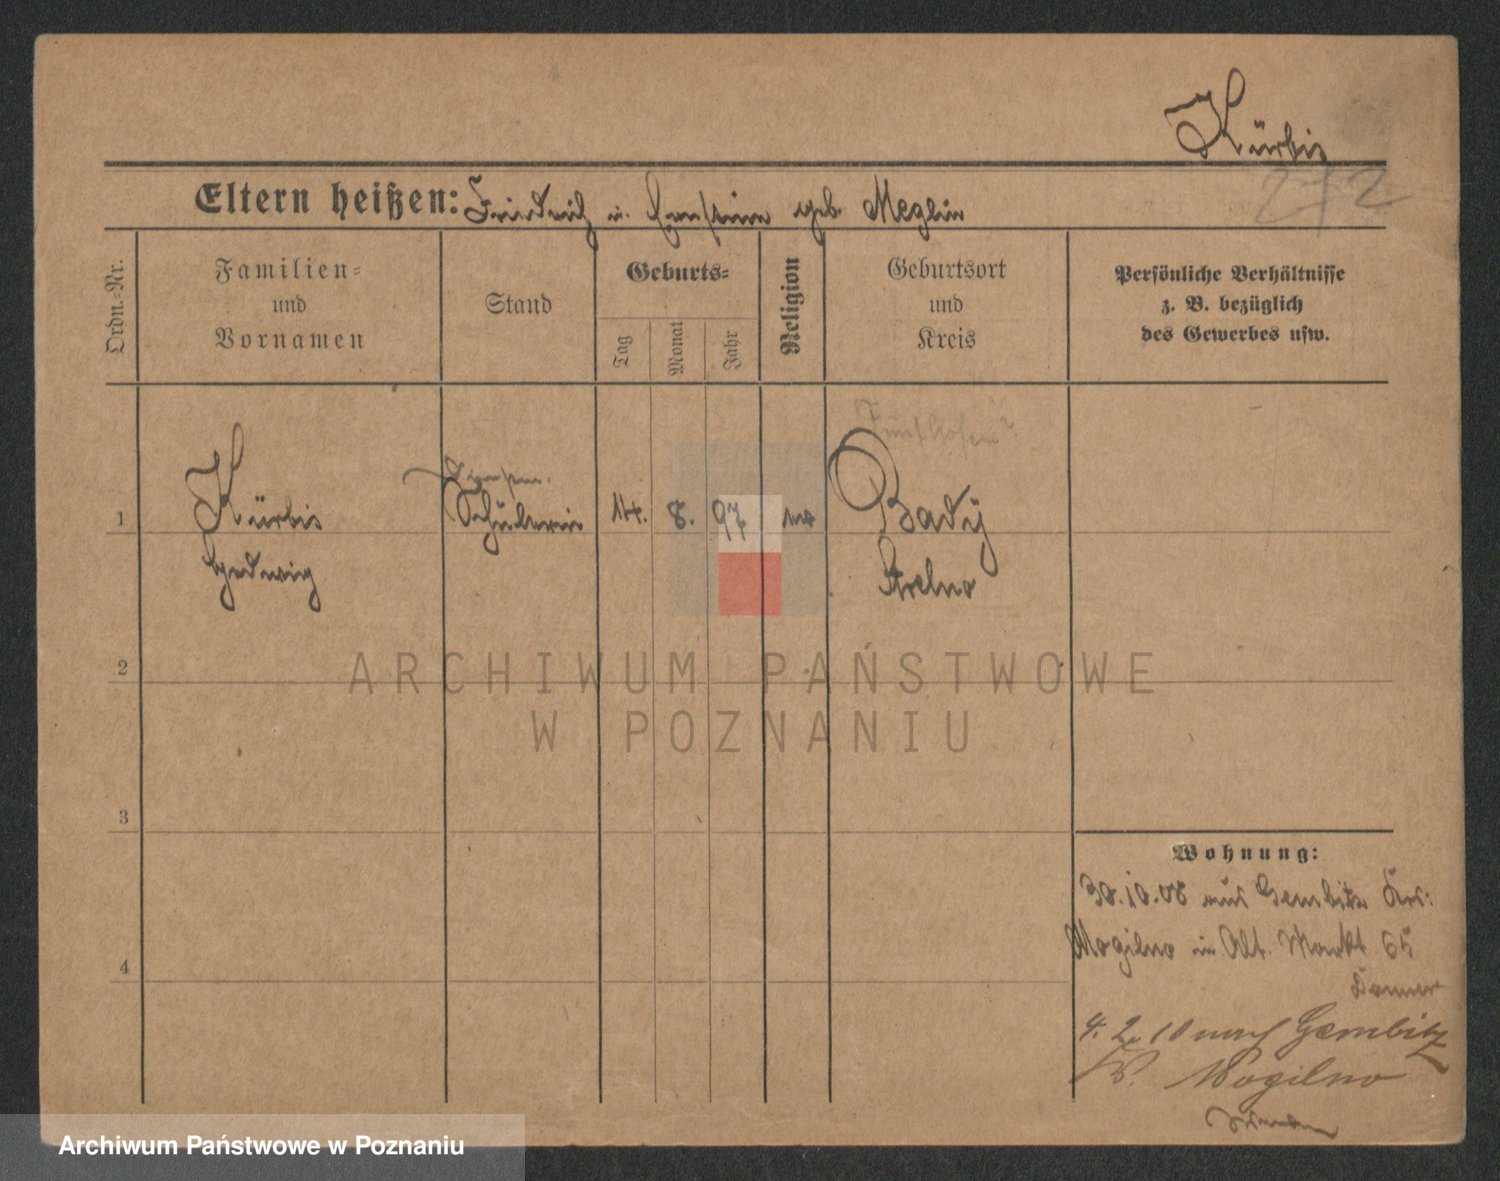 Kürbis
Eltern heißen: Friedrich u. Ernstine geb. Meglin
Ordn.=Nr.
Familien=
und
Vornamen
Stand
Geburts=
Tag
Monat
Jahr
Religion
Geburtsort
und
Kreis
Persönliche Verhältnisse
z. B. bezüglich
des Gewerbes usw.
1
Kürbis
Hedwig
Schülerin
14.
8.
97
Strelno
2
ARCHIWUM PAŃSTWOWE
W POZNANIU
3
4
Wohnung:
30.10.08 aus Gembitz Krs:
Mogilno in Alt. Markt 65
4.2.10 nach Gembitz
Mogilno
Archiwum Państwowe w Poznaniu